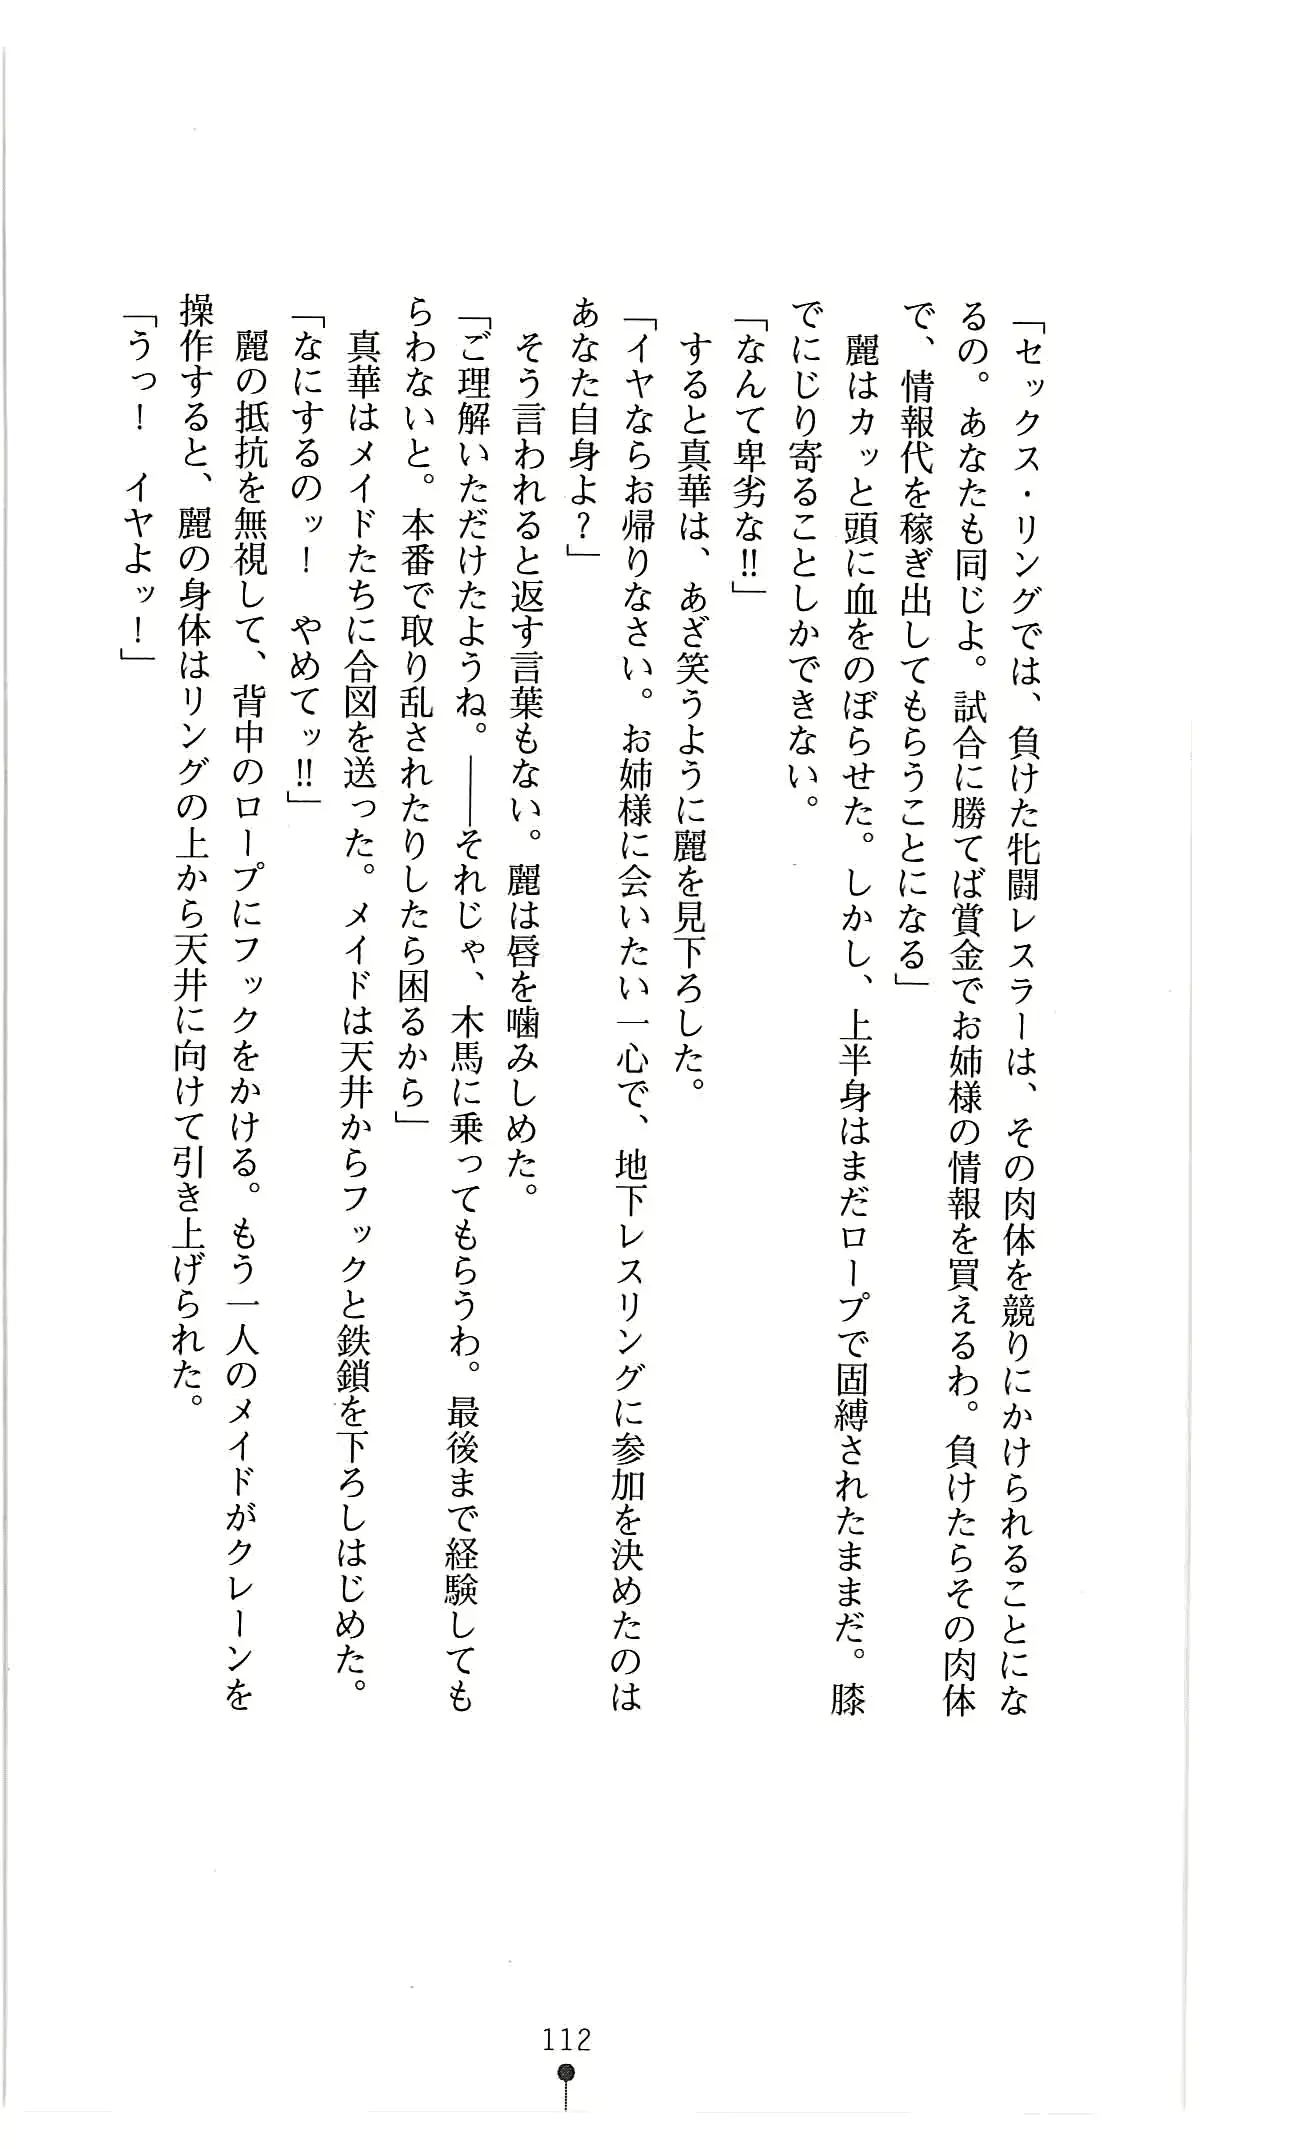 「セックス・リングでは、負けた牝闘レスラーは、その肉体を競りにかけられることにな
るの。あなたも同じよ。試合に勝てば賞金でお姉様の情報を買えるわ。負けたらその肉体
で、情報代を稼ぎ出してもらうことになる」
　麗はカッと頭に血をのぼらせた。しかし、上半身はまだロープで固縛されたままだ。膝
でにじり寄ることしかできない。
「なんて卑劣な!!」
　すると真華は、あざ笑うように麗を見下ろした。
「イヤならお帰りなさい。お姉様に会いたい一心で、地下レスリングに参加を決めたのは
あなた自身よ?」
　そう言われると返す言葉もない。麗は唇を噛みしめた。
「ご理解いただけたようね。――それじゃ、木馬に乗ってもらうわ。最後まで経験しても
らわないと。本番で取り乱されたりしたら困るから」
　真華はメイドたちに合図を送った。メイドは天井からフックと鉄鎖を下ろしはじめた。
「なにするのッ!　やめてッ!!」
　麗の抵抗を無視して、背中のロープにフックをかける。もう一人のメイドがクレーンを
操作すると、麗の身体はリングの上から天井に向けて引き上げられた。
「うっ!　イヤよッ!」
112